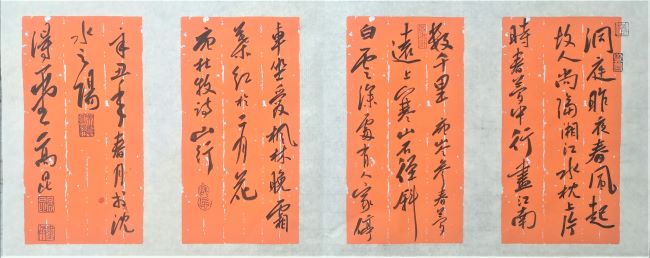 洞庭昨夜春風起
故人尚隔湘江水枕上片
時春夢中行盡江南
數千里 右岑參春夢
遠上寒山石徑斜
白雲深處有人家停
車坐愛楓林晚霜
葉紅於二月花
右杜牧詩山行
辛丑年春月於沈
水之陽
得 堂